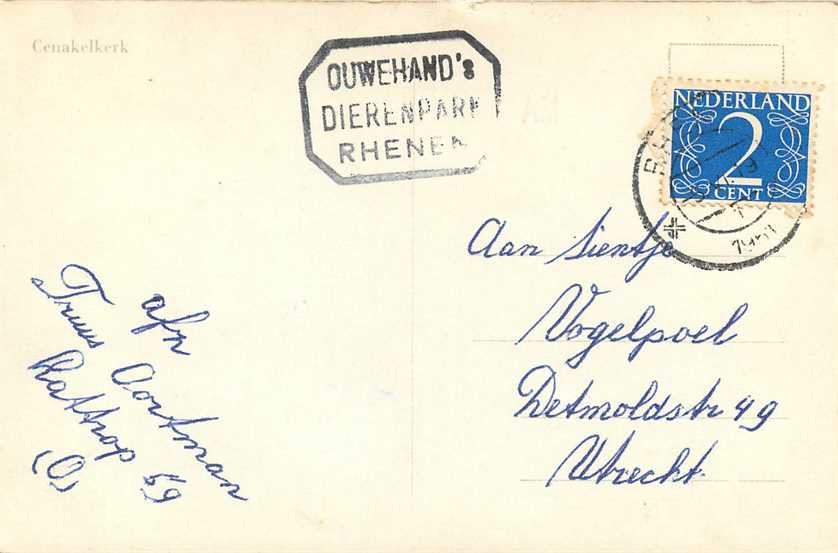 Cenakelkerk
OUWEHAND's
DIERENPARK
RHENEN
NEDERLAND
2
CENT
Aan Sientje
Vogelpoel
Detmoldstr 49
Utrecht.
afz
Truus Oortman
Rattrop 69
(O)